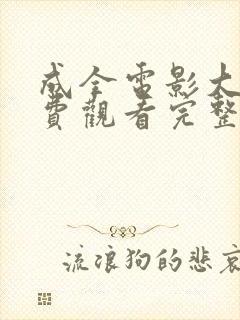 成全電影大
費觀看完整
流浪狗的悲哀